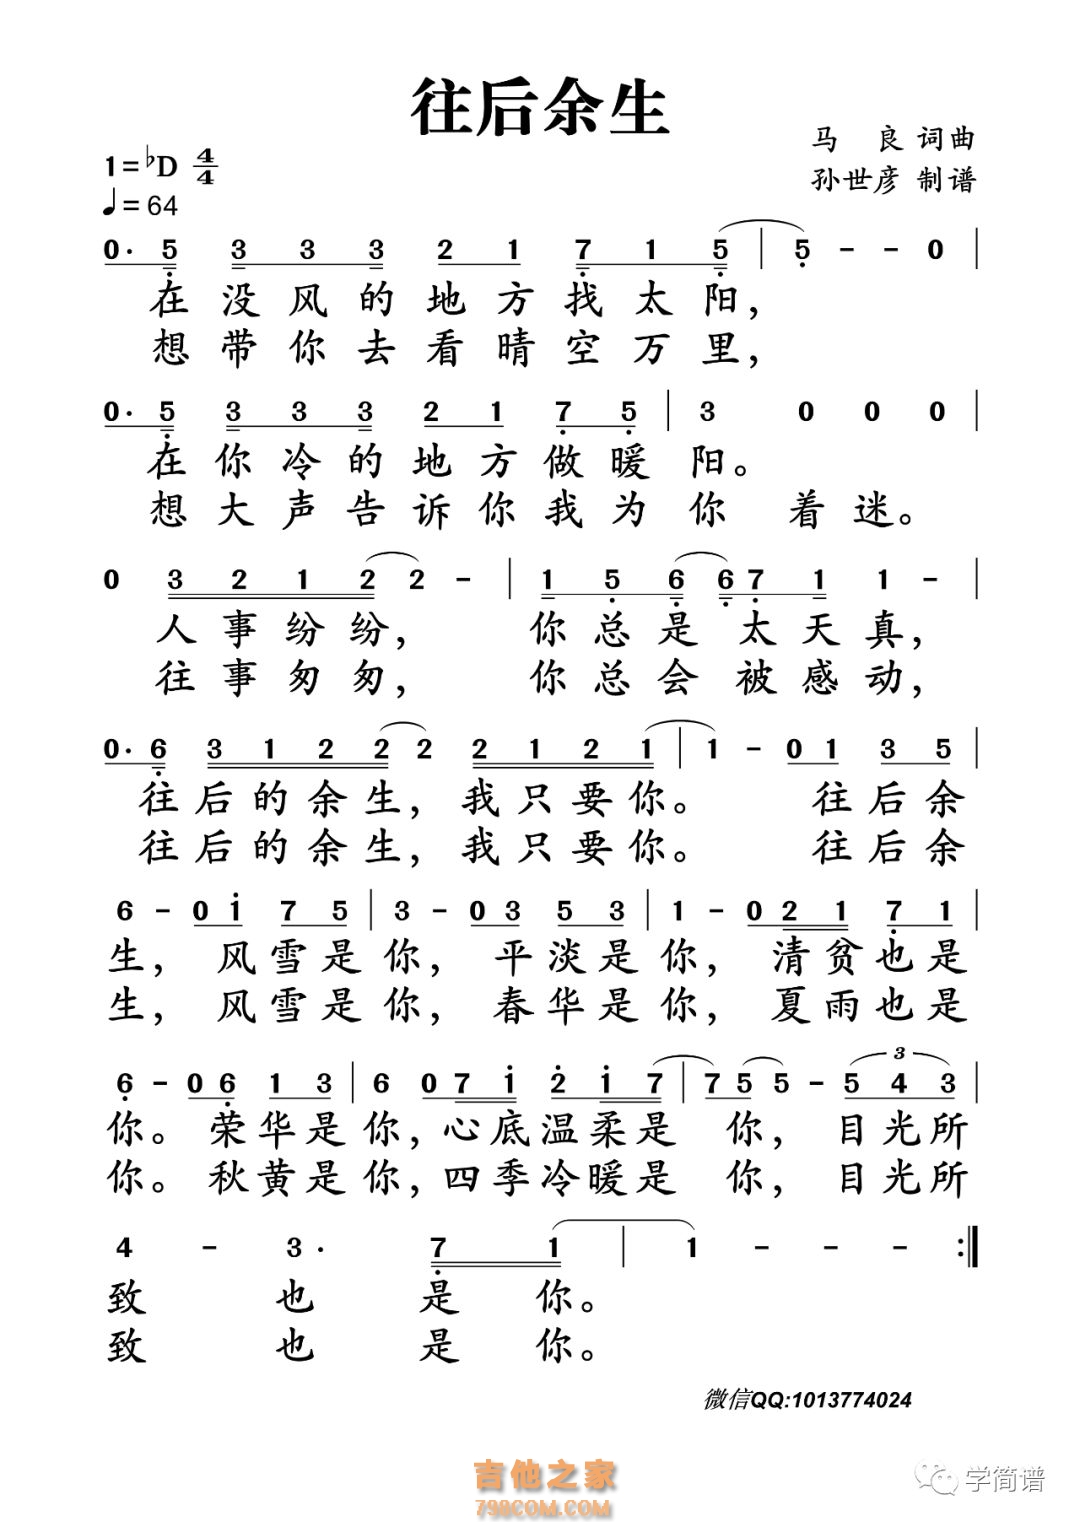 往后余生
马　良 词曲
1=♭D 4/4
孙世彦 制谱
♩=64
0· 5 3 3 3 2 1 7 1 5 | 5 - - 0 |
在没风的地方找太阳，
想带你去看晴空万里，
0· 5 3 3 3 2 1 7 5 | 3 0 0 0 |
在你冷的地方做暖阳。
想大声告诉你我为你着迷。
0 3 2 1 2 2 - | 1 5 6 6 7 1 1 - |
人事纷纷，你总是太天真，
往事匆匆，你总会被感动，
0· 6 3 1 2 2 2 2 1 2 1 | 1 - 0 1 3 5 |
往后的余生，我只要你。往后余
往后的余生，我只要你。往后余
6 - 0 1 7 5 | 3 - 0 3 5 3 | 1 - 0 2 1 7 1 |
生，风雪是你，平淡是你，清贫也是
生，风雪是你，春华是你，夏雨也是
6 - 0 6 1 3 | 6 0 7 1 2 1 7 | 7 5 5 - 3 5 4 3 |
你。荣华是你，心底温柔是你，目光所
你。秋黄是你，四季冷暖是你，目光所
4 - 3· 7 1 | 1 - - - :|
致也是你。
致也是你。
微信QQ:1013774024
吉他之家
798COM.COM
学简谱